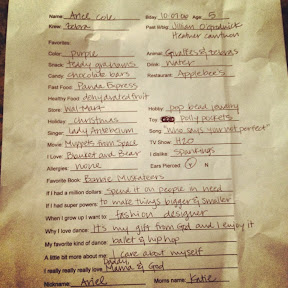 Name: Ariel Cole Bday: 10.09.06 Age: 5
Krew: Zebra Past Blog: Jillian O'Goodnick
Heather
Favorites:
Color: purple Animal: Giraffes & Zebras
Snack: teddy grahams Drink: Water
Candy: chocolate bars Restaurant: Applebees
Fast Food: Panda Express
Healthy Food: dehydrated fruit
Store: Wal-Mart Hobby: pop bead jewelry
Holiday: christmas Toy: polly pockets
Singer: lady Antebellum Song: who says your not perfect
Movie: Muppets from Space TV Show: H2O
I Love: Blanket and Bear I dislike: Spankings
Allergies: none Ears Pierced: Y N
Favorite Book: Barbie Musketeers
If I had a million dollars: spend it on people in need
If I had super powers: to make things bigger & smaller
When I grow up I want to: fashion designer
Why I love dance: It's my gift from God and I enjoy it
My favorite kind of dance: ballet & hip hop
A little bit more about me: I care about myself
I really really really love: Daddy, Mama & God
Nickname: Ariel Mom's name: Katie